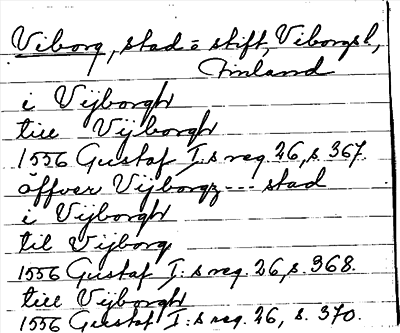 Viborg, stad = stift, Viborgs l,
Finland
i Vijborgh
till Vijborgh
1556 Gustaf I:s reg. 26, s. 367.
öffver Vijborgz --- stad
i Vijborgh
til Vijborg
1556 Gustaf I:s reg. 26, s. 368.
till Vijborgh
1556 Gustaf I:s reg. 26, s. 370.